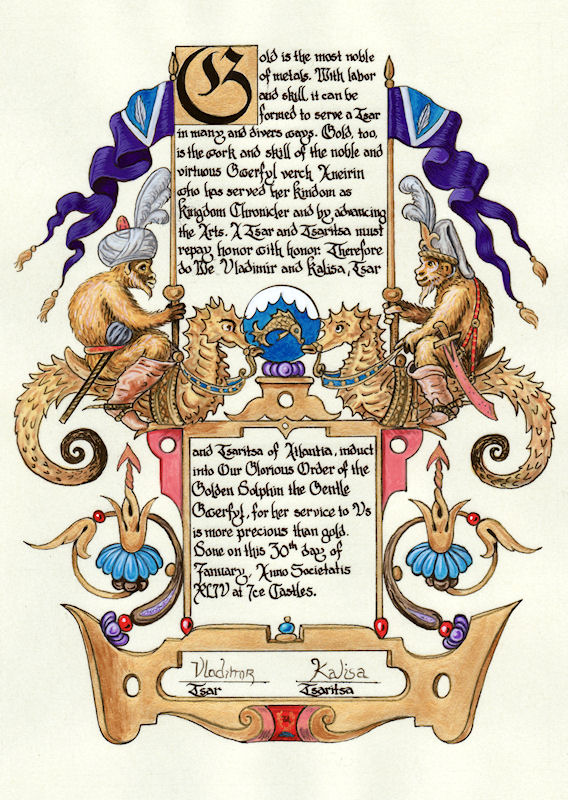 Gold is the most noble
of metals. With labor
and skill, it can be
formed to serve a Tsar
in many and divers ways. Gold, too,
is the work and skill of the noble and
virtuous Gwerfyl verch Aneirin
who has served her kindom as
Kingdom Chronicler and by advancing
the Arts. A Tsar and Tsaritsa must
repay honor with honor. Therefore
do We Vladimir and Kalisa, Tsar
and Tsaritsa of Atlantia, induct
into Our Glorious Order of the
Golden Dolphin the Gentle
Gwerfyl, for her service to Us
is more precious than gold.
Done on this 30th day of
January, Anno Societatis
XLIV at Ice Castles.
Vladimir Kalisa
Tsar Tsaritsa